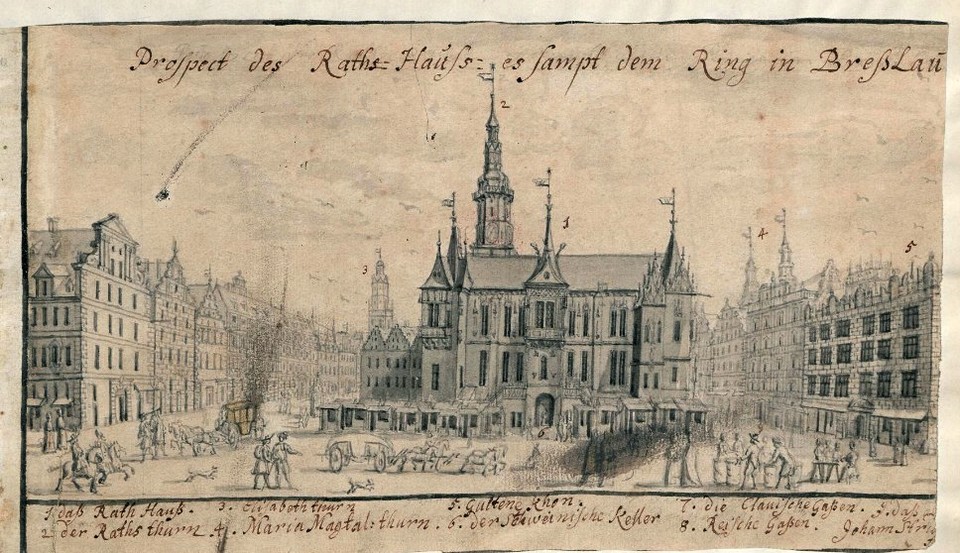 Prospect des Raths=Hauß=es sampt dem Ring in Breßlau
2
1
3
4
5
6
1. daß Rath Hauß. 3. Elisabeth thurn 5. 7. die Gaßen.
2 der Raths thurn 4. Maria Magtal: thurn. 6. der Schweinische Keller 8. Gaßen. Johann